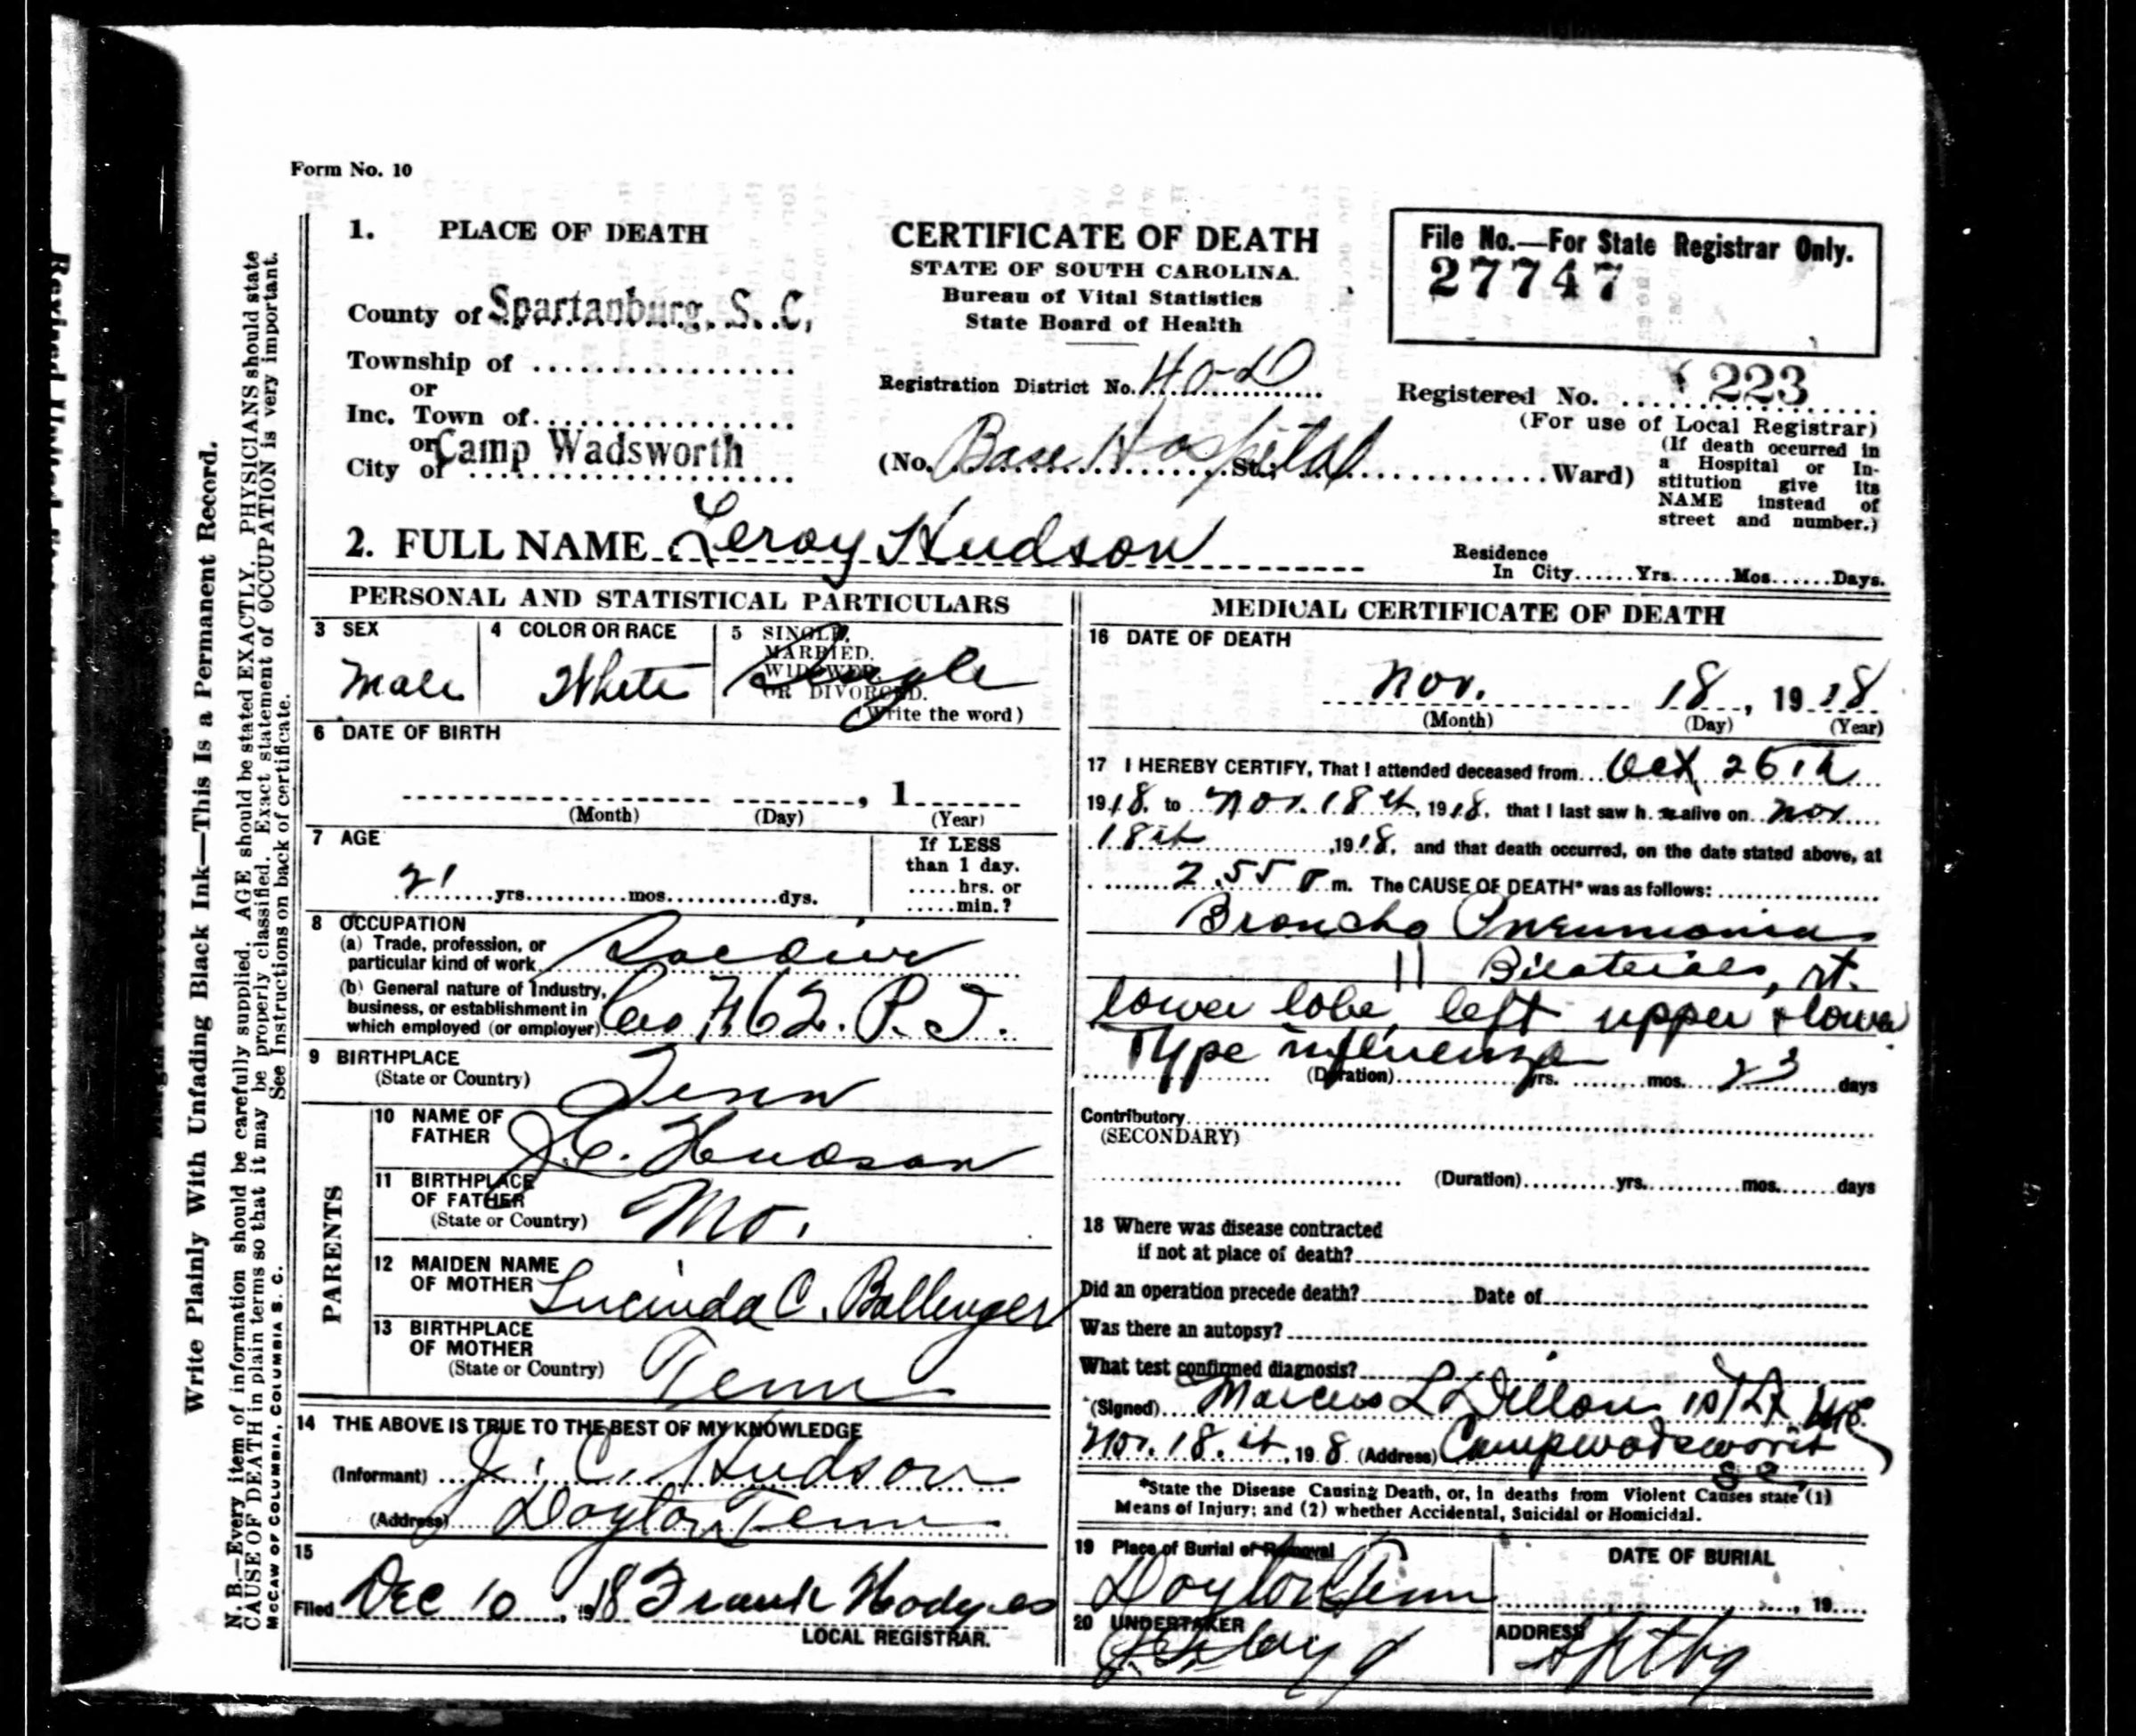 Form No. 10
1. PLACE OF DEATH
County of Spartanburg, S. C.
Township of
or
Inc. Town of
or
City of Camp Wadsworth
CERTIFICATE OF DEATH
STATE OF SOUTH CAROLINA.
Bureau of Vital Statistics
State Board of Health
Registration District No. 40-D
(No. Base Hospital St.; Ward)
File No.—For State Registrar Only.
27747
Registered No. 223
(For use of Local Registrar)
(If death occurred in
a Hospital or In-
stitution give its
NAME instead of
street and number.)
2. FULL NAME Leroy Hudson
Residence
In City Yrs. Mos. Days.
PERSONAL AND STATISTICAL PARTICULARS
3 SEX
Male
4 COLOR OR RACE
White
5 SINGLE,
MARRIED,
WIDOWED,
OR DIVORCED.
(Write the word)
Single
6 DATE OF BIRTH
, 1
(Month) (Day) (Year)
7 AGE
21 yrs. mos. dys.
If LESS
than 1 day.
hrs. or
min.?
8 OCCUPATION
(a) Trade, profession, or
particular kind of work Soldier
(b) General nature of Industry,
business, or establishment in
which employed (or employer) Co. 62. P.
9 BIRTHPLACE
(State or Country) Tenn
PARENTS
10 NAME OF
FATHER J.C. Hudson
11 BIRTHPLACE
OF FATHER
(State or Country) Mo.
12 MAIDEN NAME
OF MOTHER Lucinda C. Ballenger
13 BIRTHPLACE
OF MOTHER
(State or Country) Tenn
14 THE ABOVE IS TRUE TO THE BEST OF MY KNOWLEDGE
(Informant) J. C. Hudson
(Address) Dayton Tenn
15
Filed Dec 10, 1918 Frank Hodges
LOCAL REGISTRAR.
MEDICAL CERTIFICATE OF DEATH
16 DATE OF DEATH
Nov. 18, 1918
(Month) (Day) (Year)
17 I HEREBY CERTIFY, That I attended deceased from Oct 26th
1918. to Nov. 18th, 1918, that I last saw h alive on Nov
18th, 1918, and that death occurred, on the date stated above, at
2.55 P m. The CAUSE OF DEATH* was as follows:
Broncho Pneumonia
Bilateral, rt.
lower lobe, left upper & lower
Type influenza
(Duration) yrs. mos. 23 days
Contributory
(SECONDARY)
(Duration) yrs. mos. days
18 Where was disease contracted
if not at place of death?
Did an operation precede death? Date of
Was there an autopsy?
What test confirmed diagnosis?
(Signed) Marcus L Dillon 1st Lt MC
Nov. 18th, 198 (Address) Camp Wadsworth
SC
*State the Disease Causing Death, or, in deaths from Violent Causes state (1)
Means of Injury; and (2) whether Accidental, Suicidal or Homicidal.
19 Place of Burial or Removal
Dayton Tenn
DATE OF BURIAL
, 19
20 UNDERTAKER
J. Floyd
ADDRESS
Sptbg
Write Plainly With Unfading Black Ink—This Is a Permanent Record.
N. B.—Every item of information should be carefully supplied. AGE should be stated EXACTLY. PHYSICIANS should state
CAUSE OF DEATH in plain terms so that it may be properly classified. Exact statement of OCCUPATION is very important.
See Instructions on back of certificate.
McCAW OF COLUMBIA, COLUMBIA S. C.